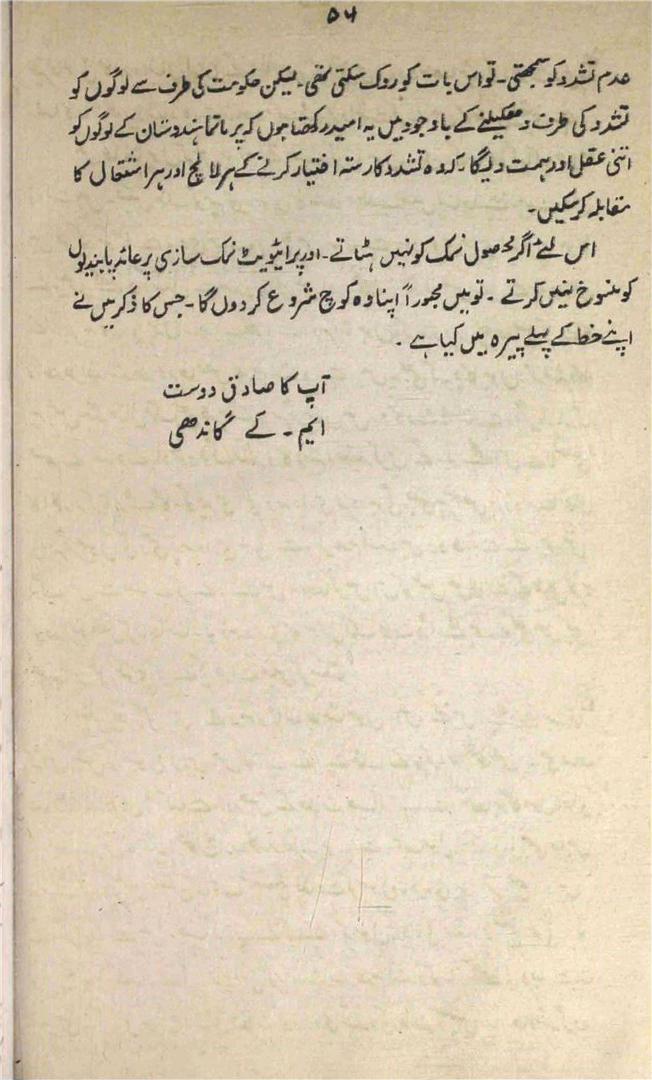 ۵۴
عدم تشدد کو سمجھتی۔ تو اس بات کو روک سکتی تھی۔ لیکن حکومت کی طرف سے لوگوں کو
تشدد کی طرف دھکیلنے کے باوجود میں یہ امید رکھتا ہوں کہ پرماتما ہندوستان کے لوگوں کو
اتنی عقل اور ہمت دیگا۔ کہ وہ تشدد کا رستہ اختیار کرنے کے ہر لالچ اور ہر اشتعال کا
مقابلہ کرسکیں۔
اس لئے اگر محصول نمک کو نہیں ہٹاتے۔ اور پرائیویٹ نمک سازی پر عائد پابندیوں
کو منسوخ نہیں کرتے۔ تو میں مجبوراً اپنا وہ کوچ شروع کر دوں گا۔ جس کا ذکر میں نے
اپنے خط کے پہلے پیرہ میں کیا ہے۔
آپ کا صادق دوست
ایم۔ کے گاندھی